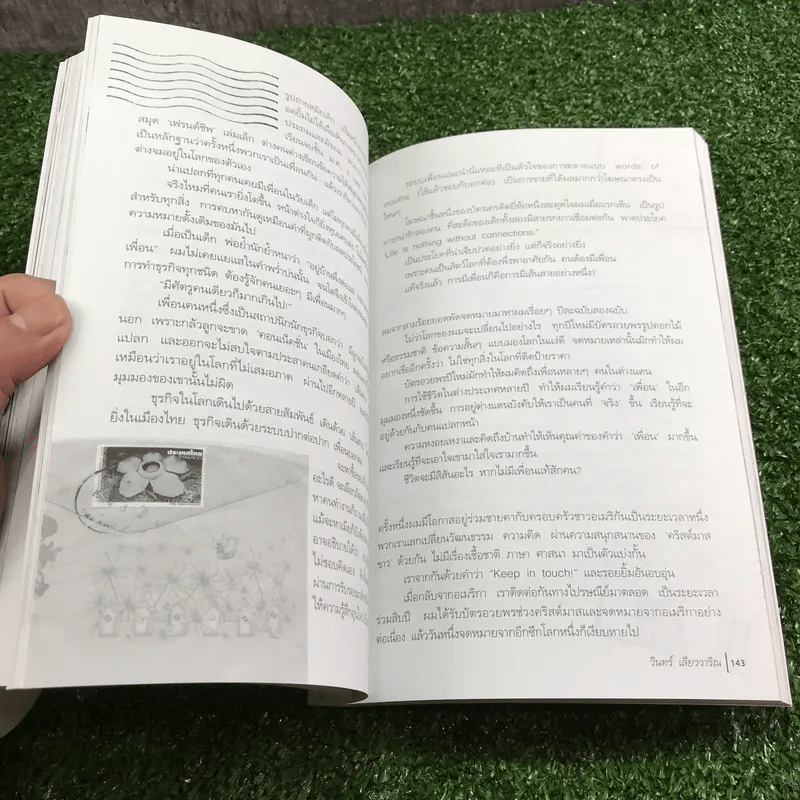 รูปถ่ายสมัยเด็ก
สมุด 'เฟรนด์ชิพ' เล่มเล็ก ต่างคนต่างเขียนข้อความ
เป็นหลักฐานว่าครั้งหนึ่งพวกเราเป็นเพื่อนกัน แล้ว
ต่างจมอยู่ในโลกของตัวเอง
น่าแปลกที่ทุกคนเคยมีเพื่อนในวัยเด็ก
จริงไหมที่คนเรายิ่งโตขึ้น หน้าต่างใจก็ยิ่ง
สำหรับทุกสิ่ง การคบหากันดูเหมือนคำที่ผูกติดกับ
ความหมายดั้งเดิมของมันไป
เมื่อเป็นเด็ก พ่อย้ำนักย้ำหนาว่า "อยู่บ้านพึ่งพ่อแม่
เพื่อน" ผมไม่เคยแยแสในคำพร่ำบ่นนั้น จน
การทำธุรกิจทุกชนิด ต้องรู้จักคนเยอะๆ มีเพื่อนมากๆ
"มีศัตรูคนเดียวก็มากเกินไป!"
เพื่อนคนหนึ่งซึ่งเป็นสถาปนิกนักธุรกิจบอกว่า
นอก เพราะกลัวลูกจะขาด 'คอนเน็คชั่น' ในเมืองไทย
แปลก และออกจะไม่สบใจตามประสาคนเกลียดคำว่า
เหมือนว่าเราอยู่ในโลกที่ไม่เสมอภาค ผ่านไปอีกหลายปี
มุมมองของเขานั้นไม่ผิด
ธุรกิจในโลกเดินไปด้วยสายสัมพันธ์ เดินด้วย 'เส้นสาย'
ยิ่งในเมืองไทย ธุรกิจเดินด้วยระบบปากต่อปาก
ประเทศไทย
จะซื้อของ
อะไรดี จะเลือก
หาคนทำงาน
แม้จะหาเมีย
อาจอธิบายได้ว่า
ไม่ชอบคิดเอง
ผ่านการรับรอง
ให้ความรู้สึก
ระบบเพื่อนแนะนำนี่แหละที่เป็นหัวใจของการตลาดแบบ words of
mouths (ใช้แล้วชอบก็บอกต่อ) เป็นการขายที่ได้ผลมากกว่าโฆษณาตรงเป็น
ไหนๆ
โฆษณาชิ้นหนึ่งของบัตรเครดิตยี่ห้อหนึ่งสะดุดใจผมเมื่อแรกเห็น เป็นรูป
ทารกน่ารักสองคน ที่สะดือของเด็กทั้งสองมีสายรกยาวเชื่อมต่อกัน พาดประโยค
"Life is nothing without connections."
เป็นประโยคที่น่าเจ็บปวดอย่างยิ่ง แต่ก็จริงอย่างยิ่ง
เพราะคนเป็นสัตว์โลกที่ต้องพึ่งพาอาศัยกัน คนต้องมีเพื่อน
แท้จริงแล้ว การมีเพื่อนก็คือการมีเส้นสายอย่างหนึ่ง?
ลมจากสามร้อยยอดพัดจดหมายมาหาผมเรื่อยๆ ปีละฉบับสองฉบับ
ไม่ว่าโลกของผมจะเปลี่ยนไปอย่างไร ทุกปีใหม่มีบัตรอวยพรรูปดอกไม้
หรือธรรมชาติ ข้อความสั้นๆ แบบมองโลกในแง่ดี จดหมายเหล่านั้นมักทำให้ผม
อยากเชื่ออีกครั้งว่า ไม่ใช่ทุกสิ่งในโลกที่ติดป้ายราคา
บัตรอวยพรปีใหม่มักทำให้ผมคิดถึงเพื่อนหลายๆ คนในต่างแดน
การใช้ชีวิตในต่างประเทศหลายปี ทำให้ผมเรียนรู้คำว่า 'เพื่อน' ในอีก
มุมมองหนึ่งชัดขึ้น การอยู่ต่างแดนบังคับให้เราเป็นคนที่ 'จริง' ขึ้น เรียนรู้ที่จะ
อยู่ด้วยกันกับคนแปลกหน้า
ความหงอยเหงาและคิดถึงบ้านทำให้เห็นคุณค่าของคำว่า 'เพื่อน' มากขึ้น
และเรียนรู้ที่จะเอาใจเขามาใส่ใจเรามากขึ้น
ชีวิตจะมีสีสันอะไร หากไม่มีเพื่อนแท้สักคน?
ครั้งหนึ่งผมมีโอกาสอยู่ร่วมชายคากับครอบครัวชาวอเมริกันเป็นระยะเวลาหนึ่ง
พวกเราแลกเปลี่ยนวัฒนธรรม ความคิด ผ่านความสนุกสนานของ 'คริสต์มาส
ขาว' ด้วยกัน ไม่มีเรื่องเชื้อชาติ ภาษา ศาสนา มาเป็นตัวแบ่งกั้น
เราจากกันด้วยคำว่า "Keep in touch!" และรอยยิ้มอันอบอุ่น
เมื่อกลับจากอเมริกา เราติดต่อกันทางไปรษณีย์มาตลอด เป็นระยะเวลา
ร่วมสิบปี ผมได้รับบัตรอวยพรช่วงคริสต์มาสและจดหมายจากอเมริกาอย่าง
ต่อเนื่อง แล้ววันหนึ่งจดหมายจากอีกซีกโลกหนึ่งก็เงียบหายไป
วินทร์ เลียววาริณ | 143